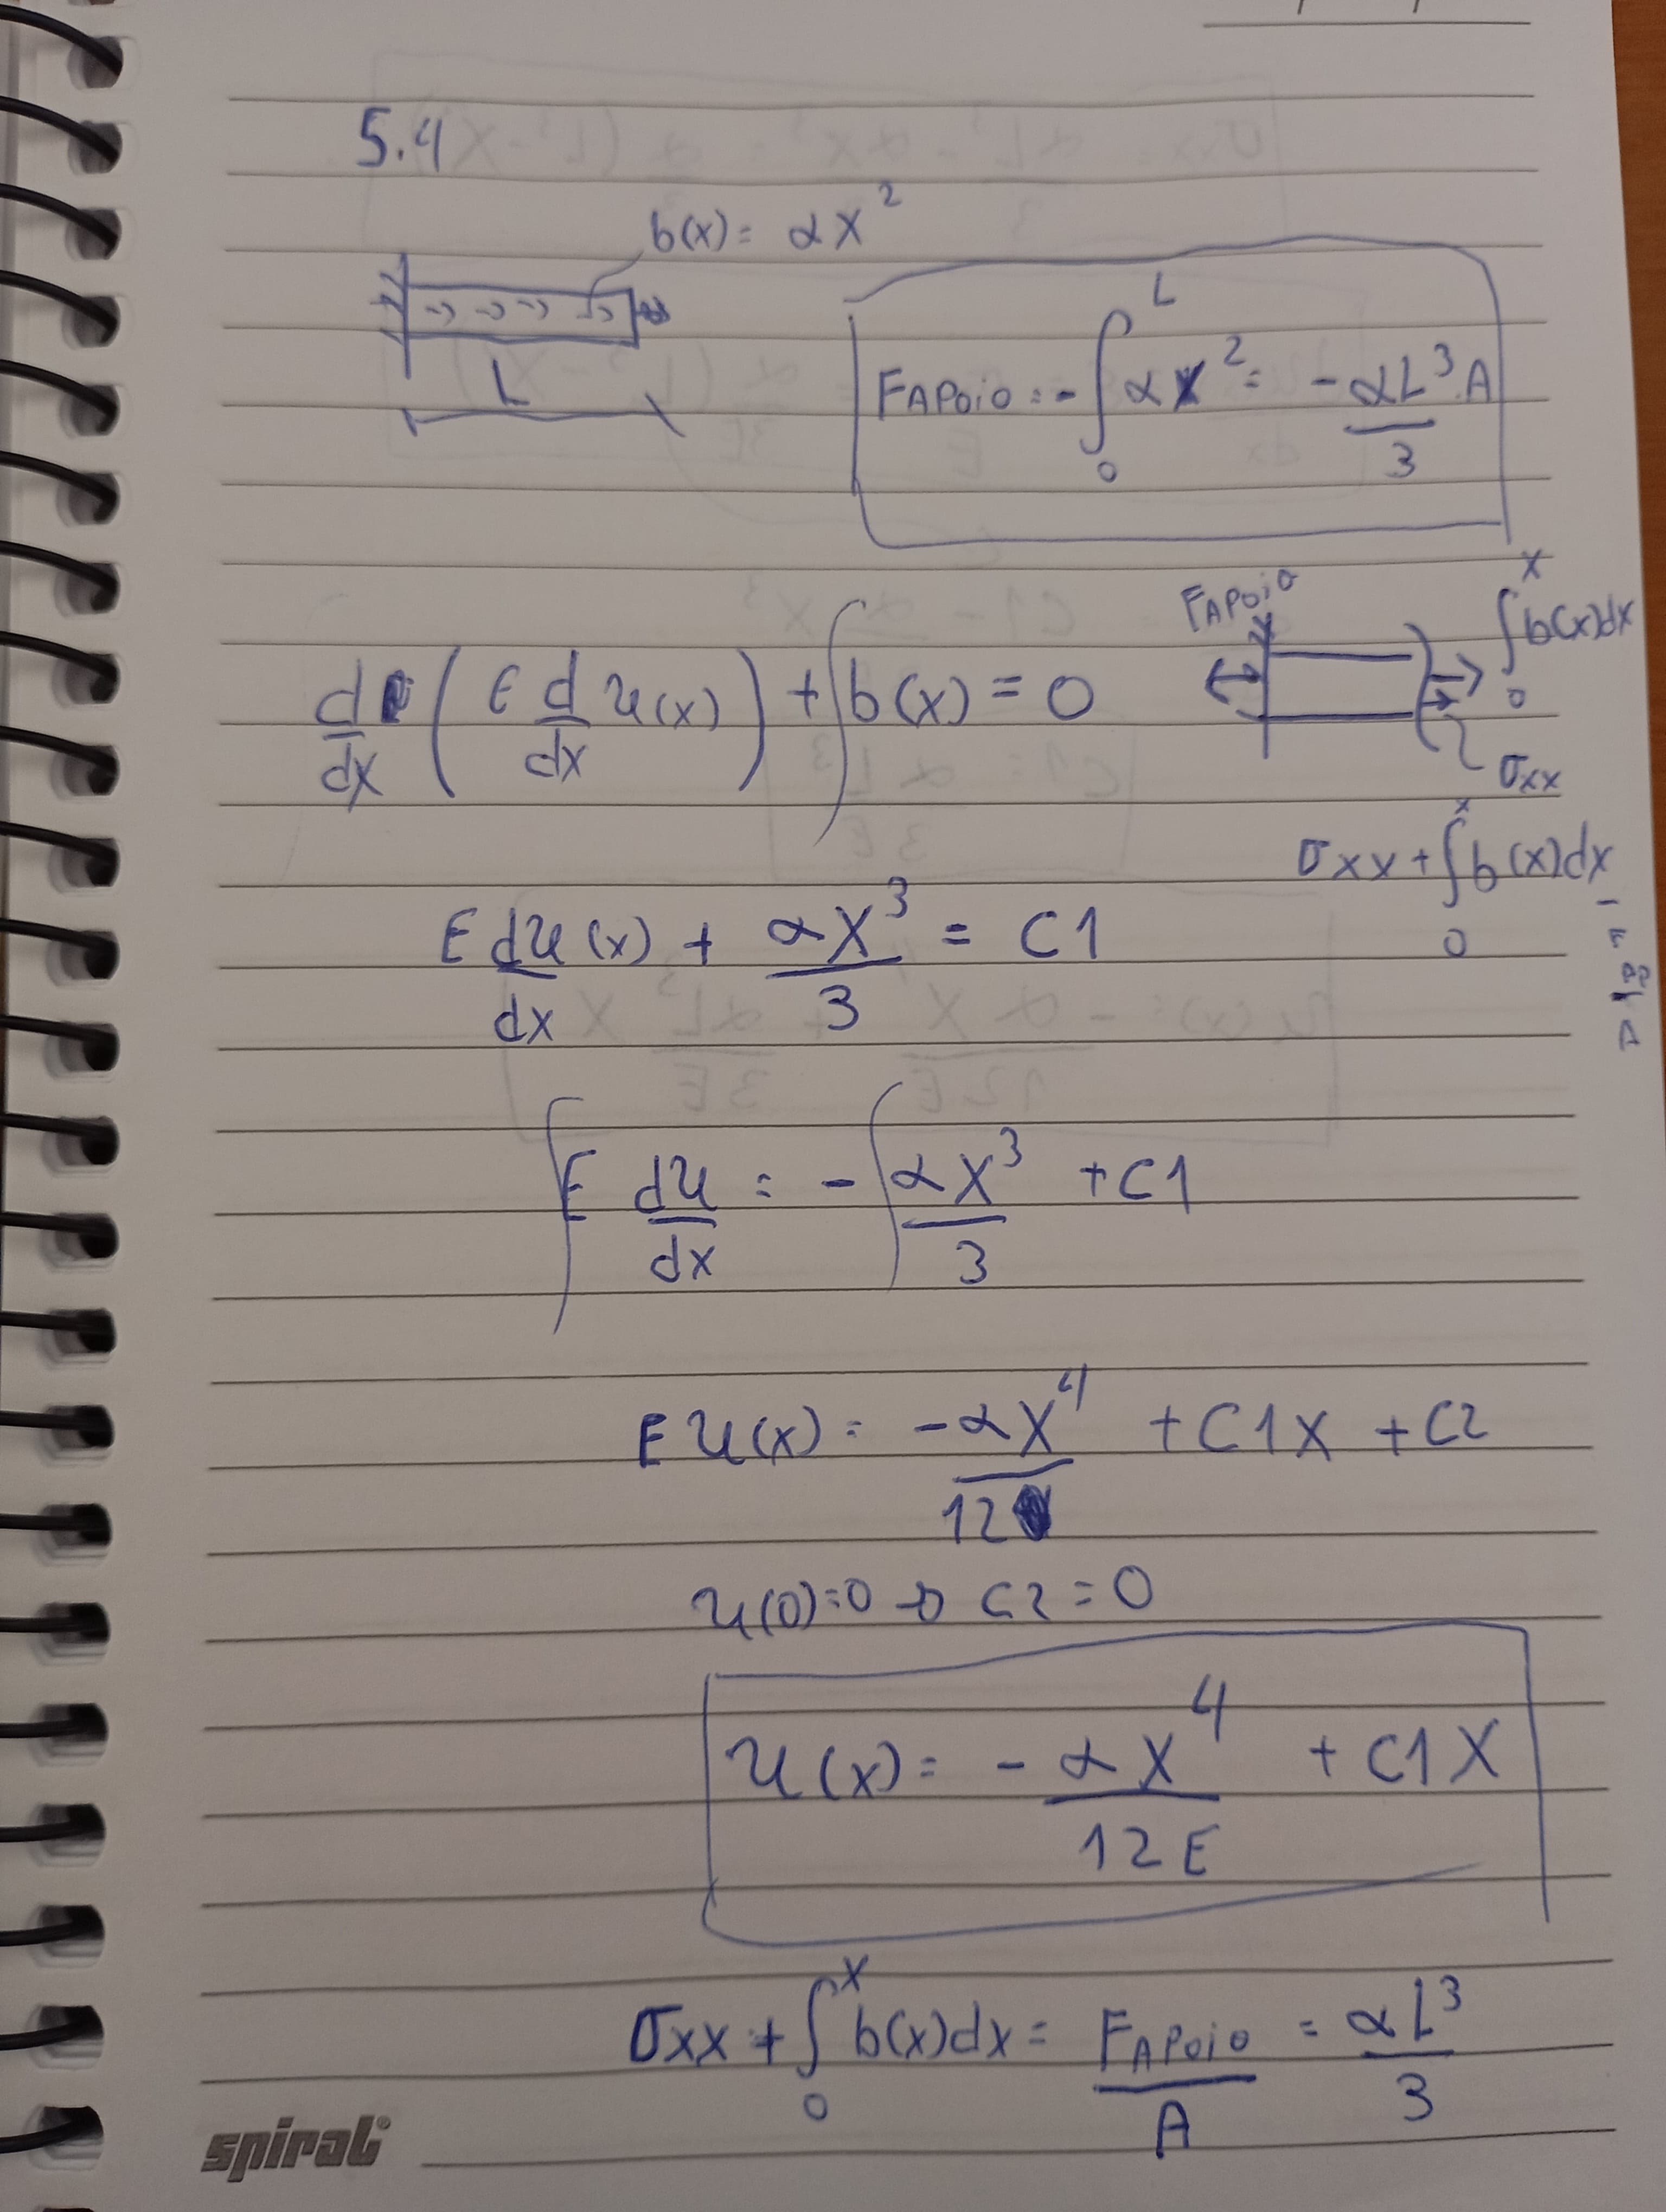 5.4
b(x) = αx²
L
F_APOIO = -∫₀ᴸ αx² = -αL³/3 . A
d/dx (E d/dx u(x)) + ∫b(x) = 0
F_APOIO
∫₀ˣ b(x)dx
σxx
σxx + ∫₀ˣ b(x)dx
E du/dx (x) + αx³/3 = C1
∫E du/dx = -∫αx³/3 + C1
E u(x) = -αx⁴/12 + C1x + C2
u(0)=0 → C2 = 0
u(x) = -αx⁴/12E + C1x
σxx + ∫₀ˣ b(x)dx = F_APOIO/A = αL³/3
spiral®